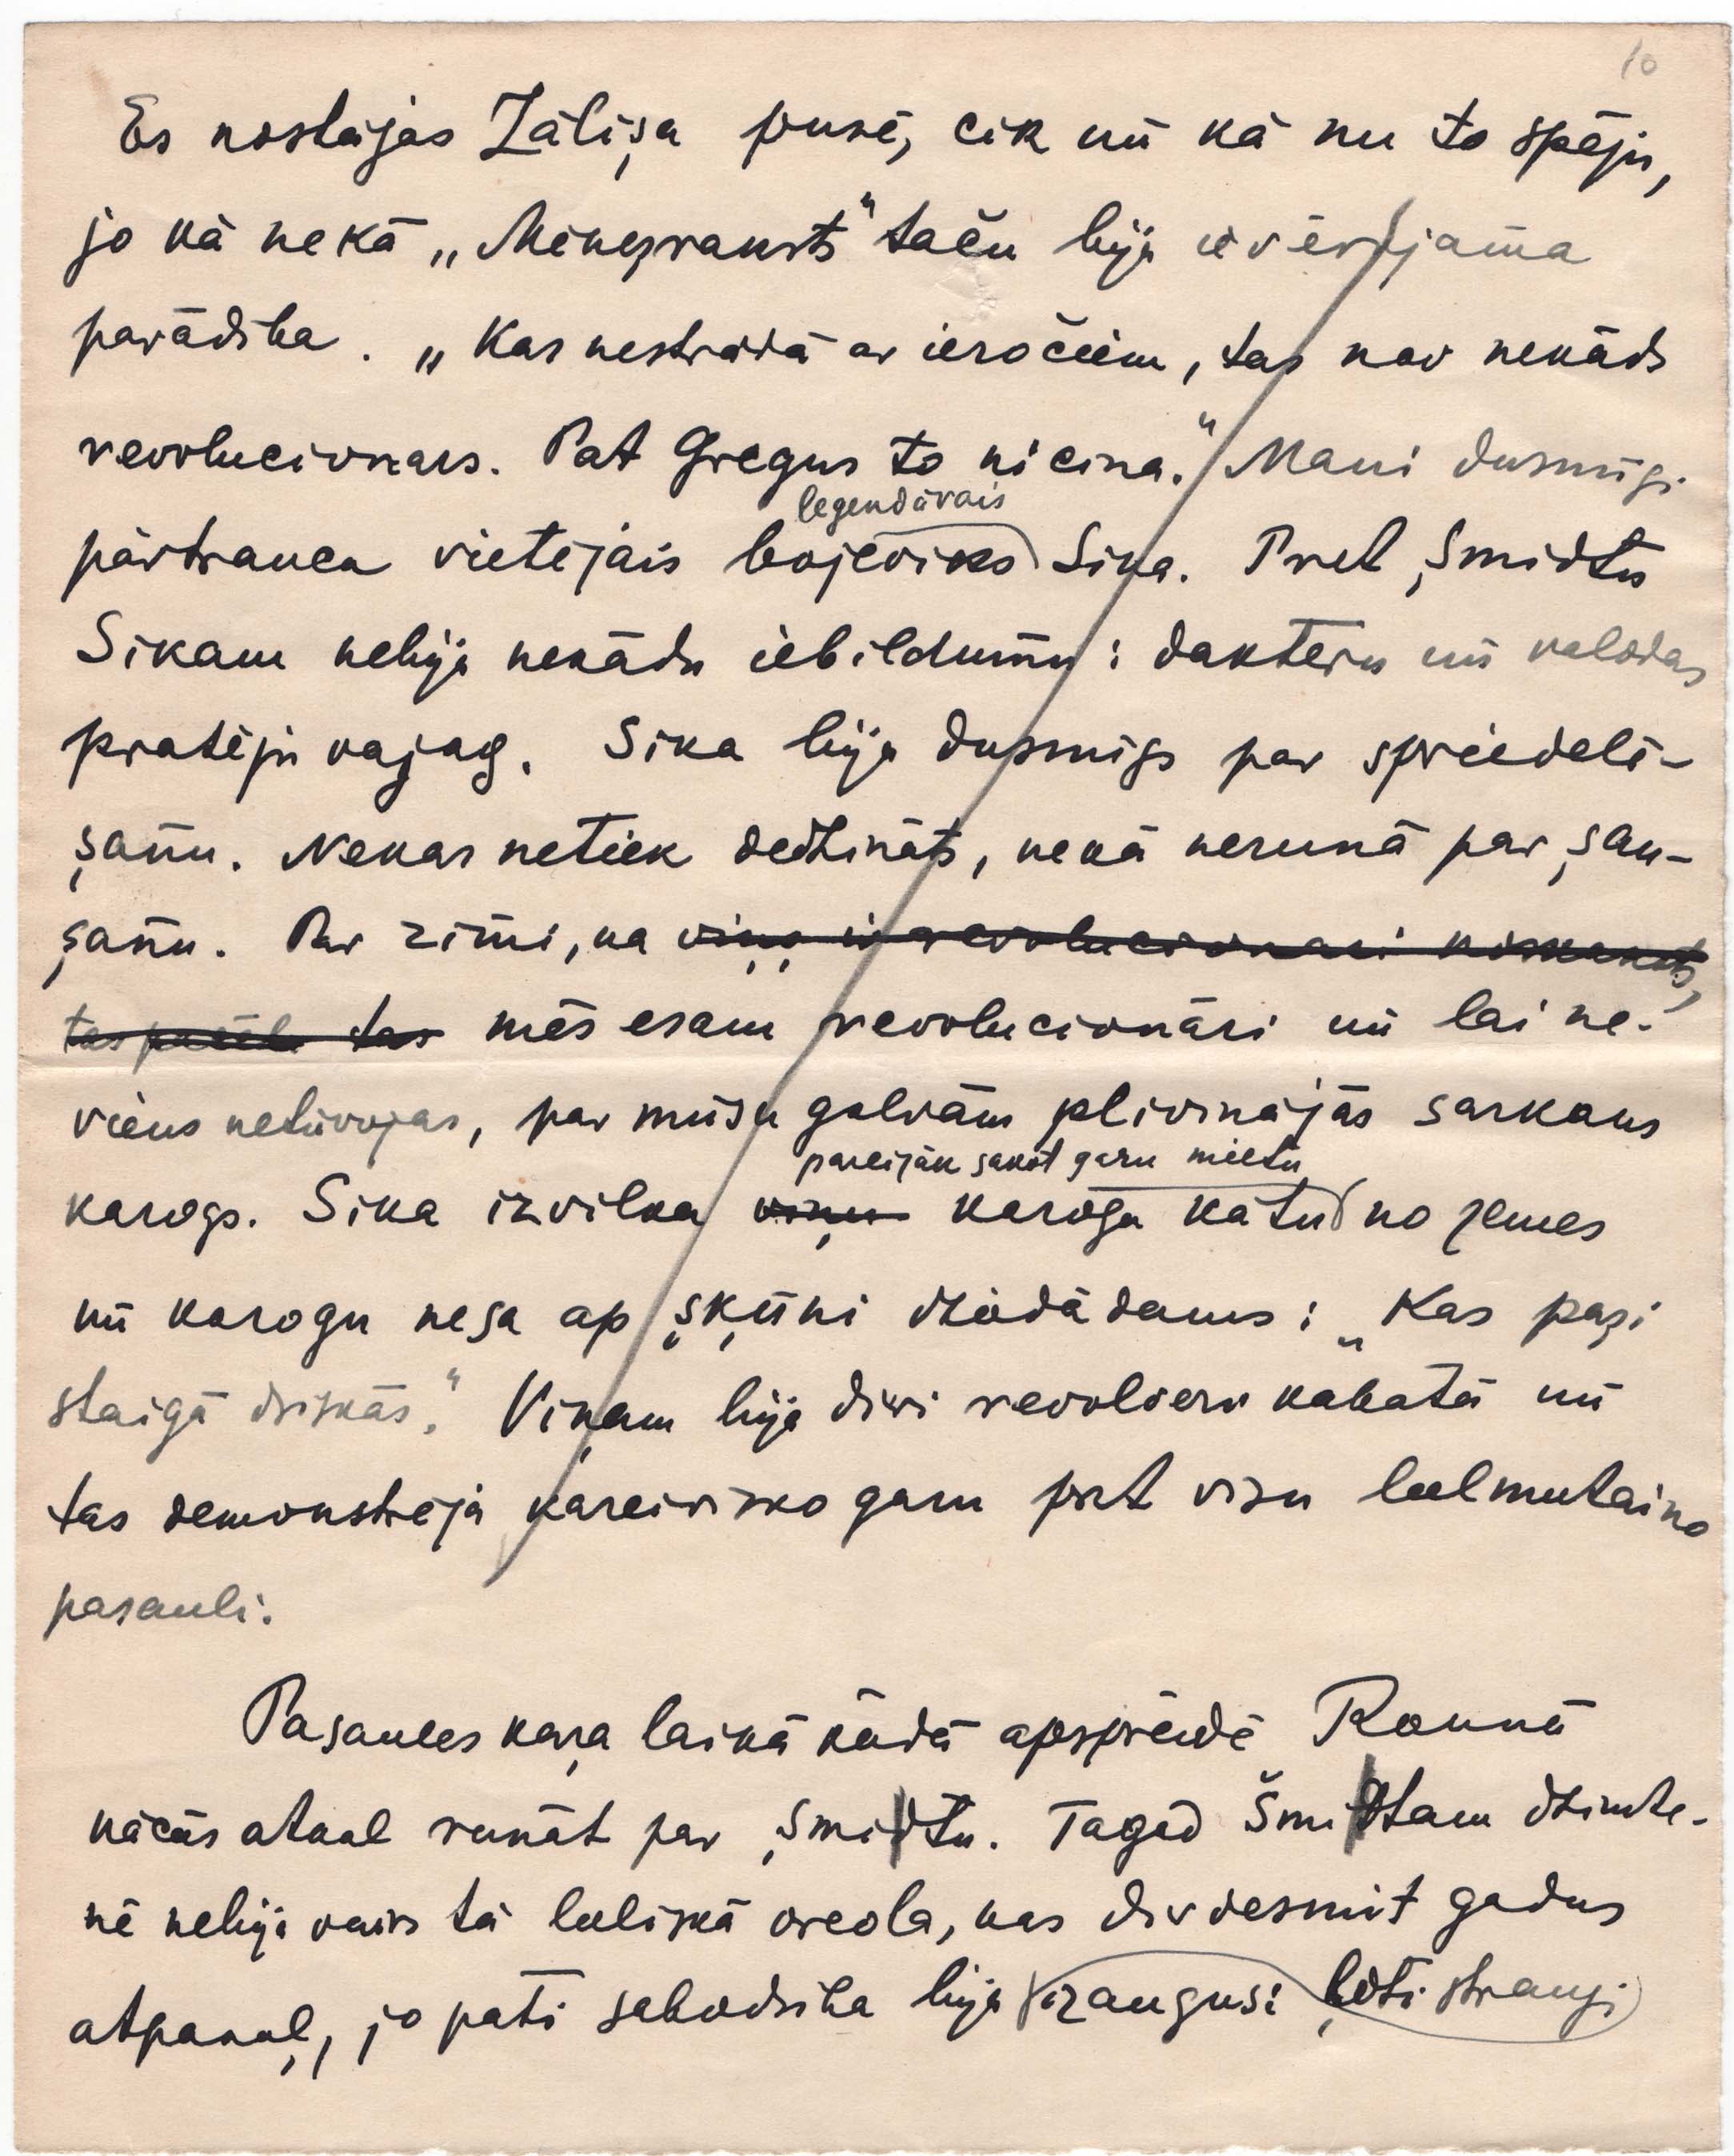 10
Es nostājos Zāliša pusē, cik un kā nu to spēju,
jo kā nekā „Melngrausts" taču bija ievērojama
parādība. „Kas nestrādā ar ieročiem, tas nav nekāds
revolucionars. Pat Gregus to nicina." Mani dusmīgi
legendārais
pārtrauca vietējais bojeviks Sika. Pret Šmidtu
Sikam nebija nekādu iebildumu: dakteru un valodas
pratēju vajag. Sika bija dusmīgs par spriedelē-
šanu. Nekas netiek dedzināts, nekā nerunā par šau-
šanu. Par zīmi, ka viņš ir revolucionari noskaņots,
tas pats tas mēs esam revolucionāri un lai ne-
viens netuvojas, par mūsu galvām plivinājās sarkans
pareizāk sakot garu mietu
karogs. Sika izvilka viņu karoga kātu no zemes
un karogu nesa ap šķūni dziedādams: „Kas paši
staigā driskās." Viņam bija divi revolveri kabatā un
tas demonstrēja kareivisko garu pret visu lielmutaino
pasauli.
Pasaules kara laikā kādā apspriedē Rounā
nācās atkal runāt par Šmitu. Tagad Šmitam dzimte-
nē nebija vairs tā lieliskā oreola, kas divdesmit gadus
atpakaļ, jo pati sabiedriba bija izaugusi ļoti strauji